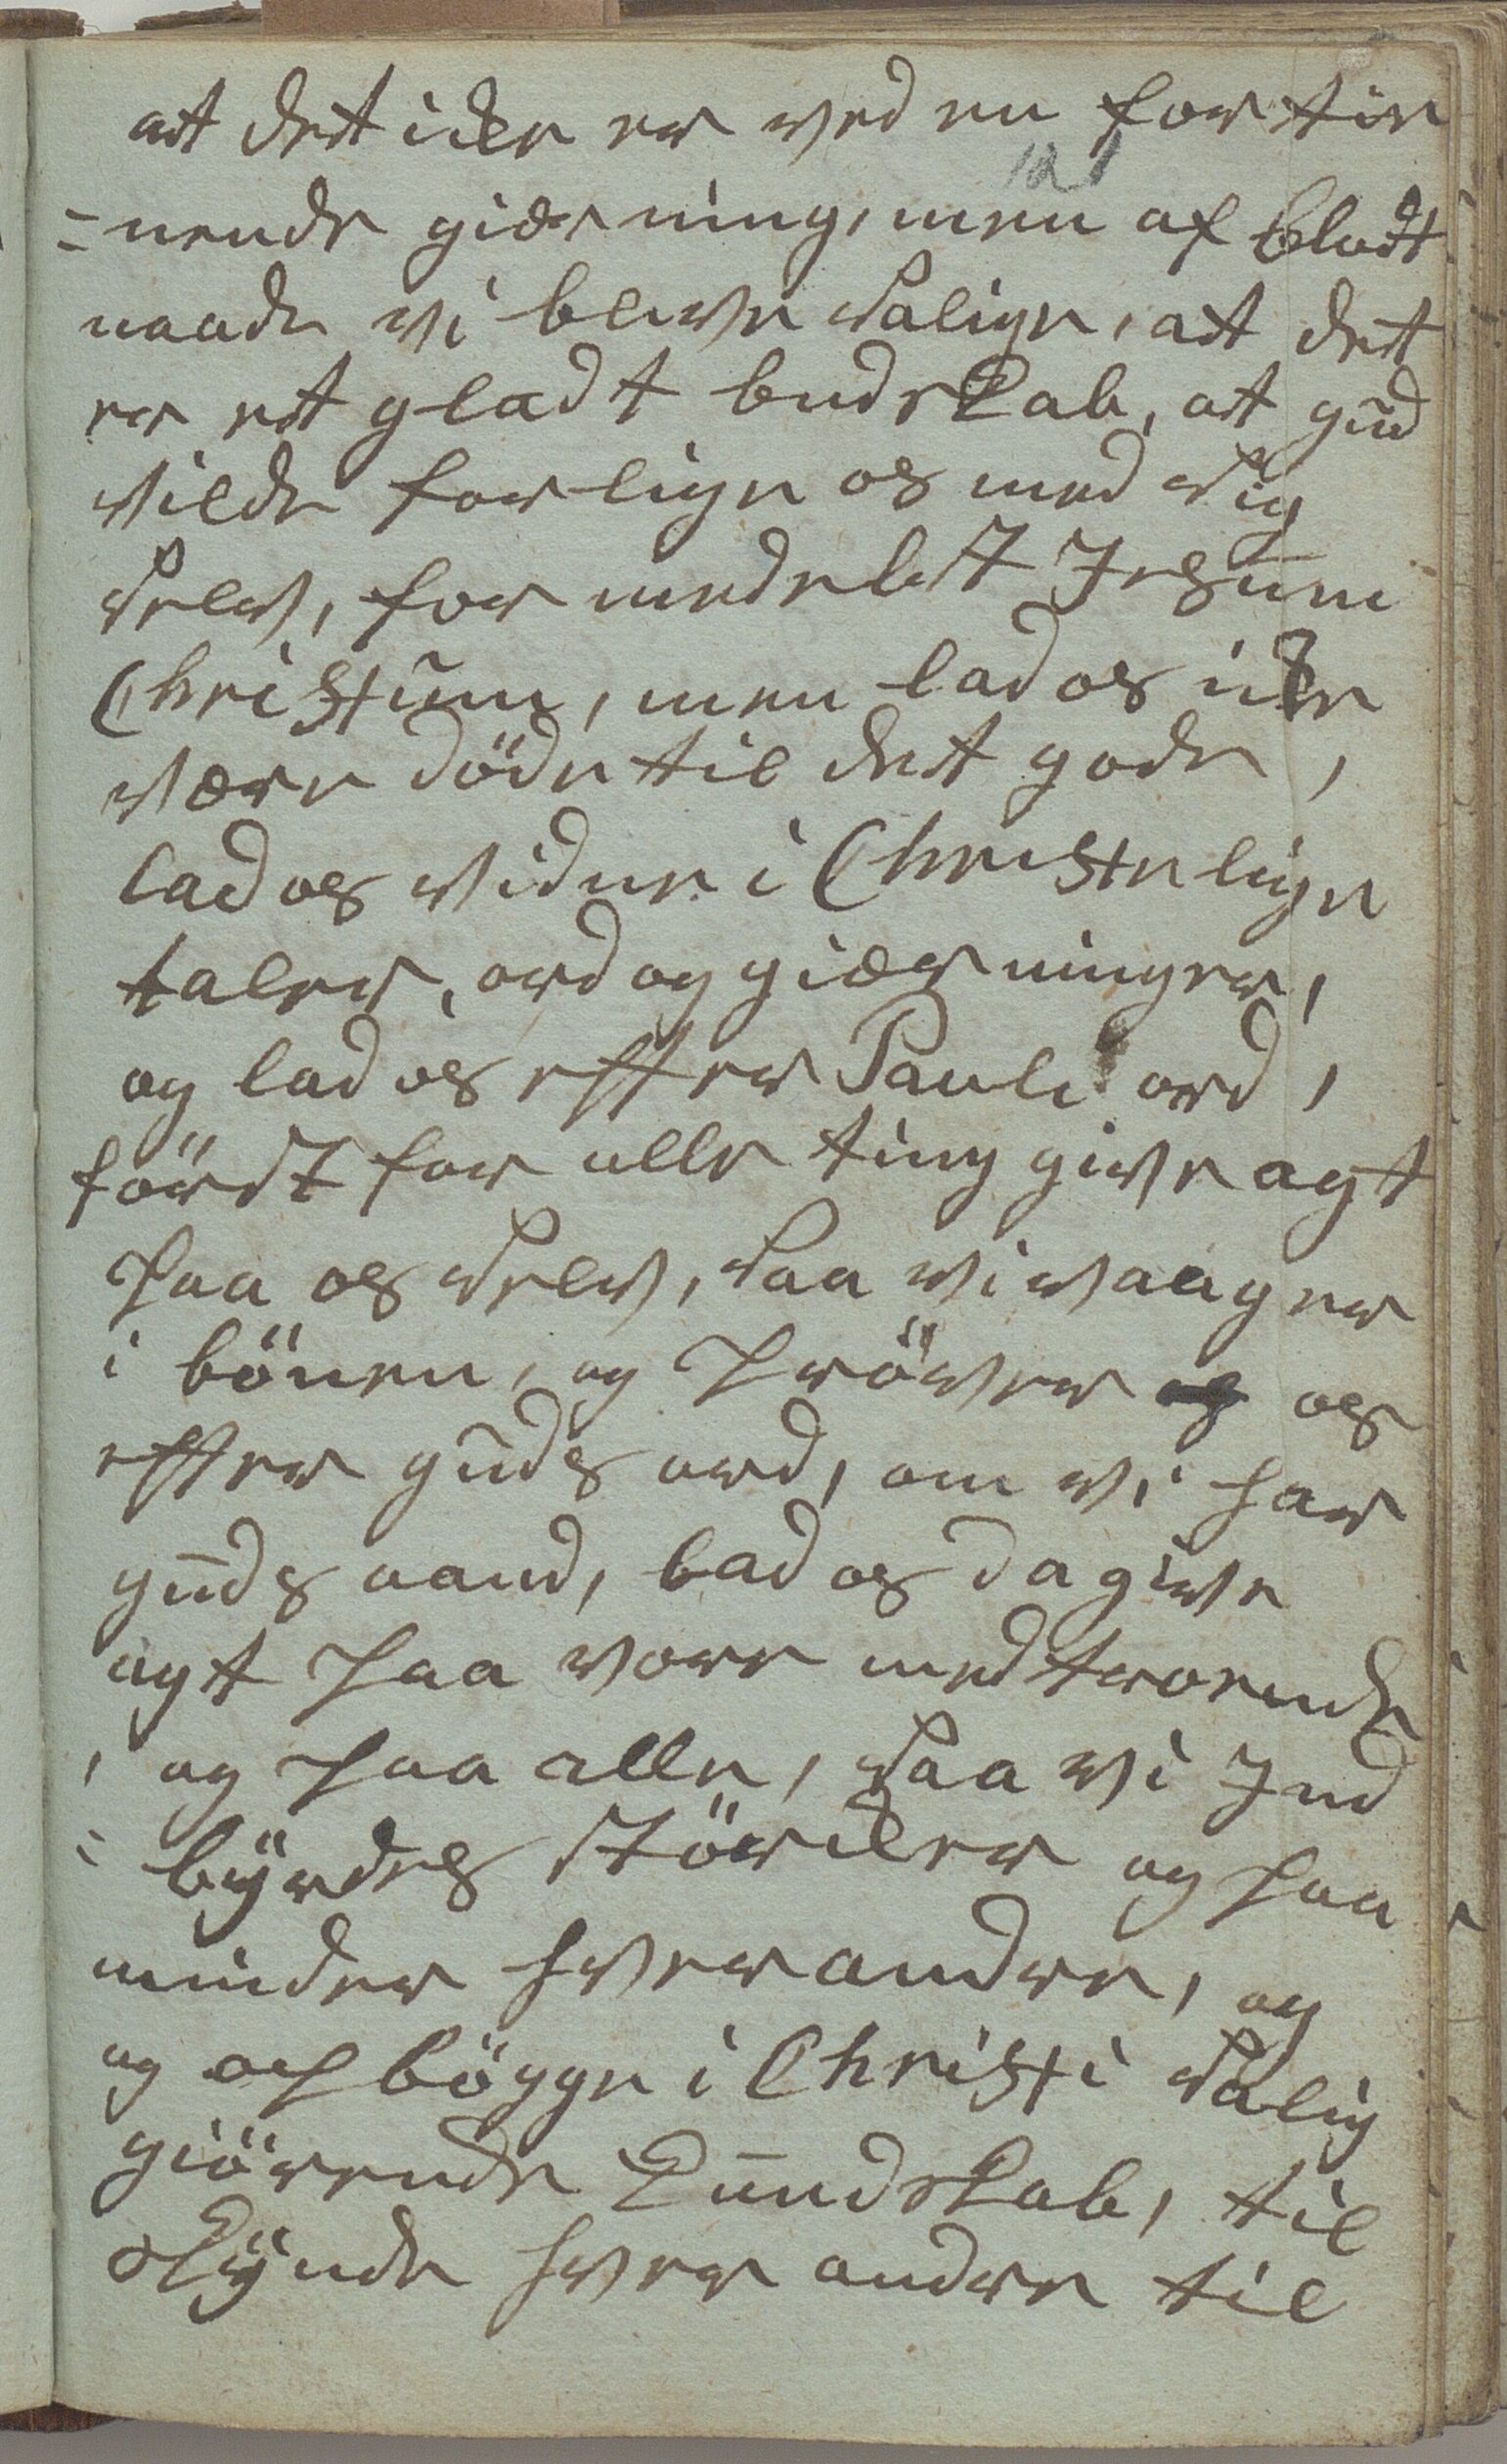 at det icke er ved en for tie
=nende giærning, men af blodt
naade vi blive Salige, at det
er et gladt budskab, at gud
vilde forlige os med Sig
Selv, for medelst Jesum
Christum, men lad os icke
være döde til det gode,
lad os vidne i Christelige
taler, ord og giærninger,
og lad os effter Pauli ord,
först for alle ting give agt
paa os Selv, Saa vi vaager
i bönen, og pröver os
effter guds ord, om vi har
guds aand, lad os da give
agt paa vore medtroende
, og paa alle, Saa vi Ind
=byrdes störcker og paa
minder hverandre, og
og opbögge i Christi Salig
giörende Kundskab, til
skÿnde hver andre til